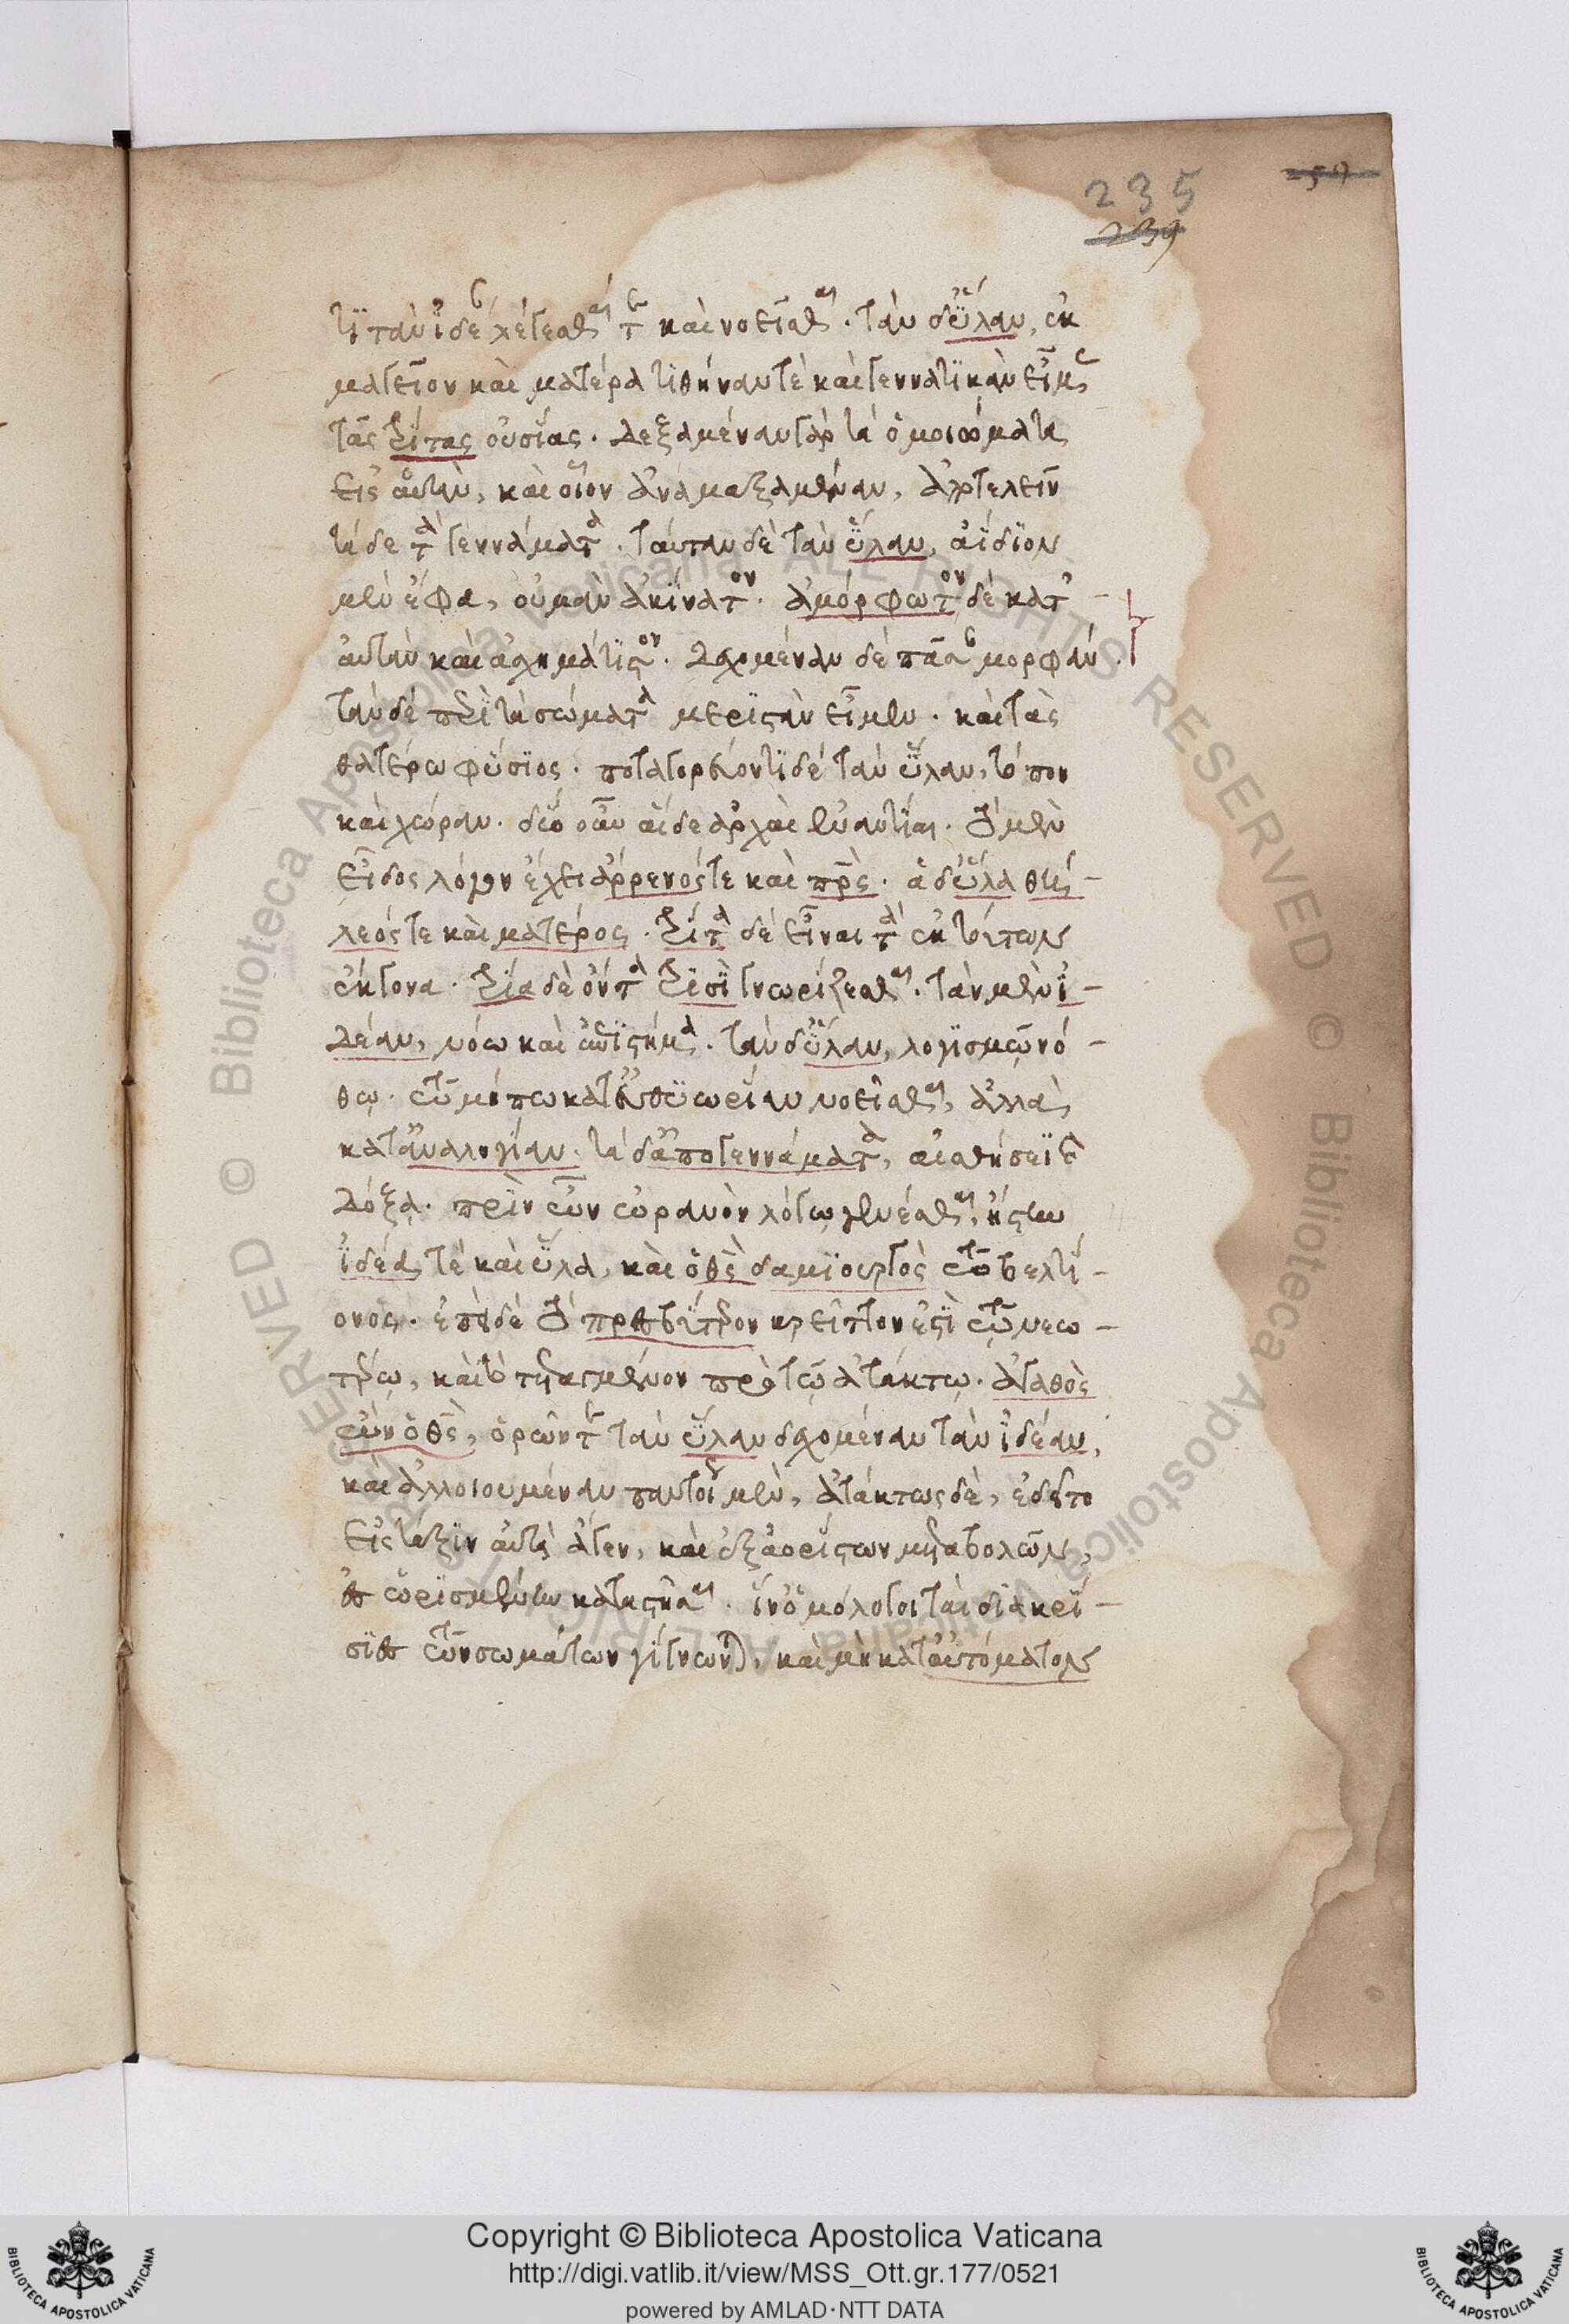 235
239
τι τὰν ἰδέαν λέγεσθαί τε καὶ νοεῖσθαι. τὰν δ' ὕλαν, ἐκ
μαγεῖον καὶ ματέρα τιθήναν τὲ καὶ γεννατικὰν εἶμεν
τᾶς τρίτας οὐσίας. δεξαμέναν γὰρ τὰ ὁμοιώματα
εἰς αὑτὰν, καὶ οἷον ἀναμαξαμέναν, ἀποτελεῖν
τάδε τὰ γεννάματα. ταύταν δὲ τὰν ὕλαν, ἀΐδιον
μὲν ἔφα, οὐ μὰν ἀκίνατον. ἀμόρφωτον δὲ κατ'
αὑτὰν καὶ ἀσχημάτιστον. δεχομέναν δὲ πᾶσαν μορφάν.
τὰν δὲ περὶ τὰ σώματα μεριστὰν εἶμεν. καὶ τὰς
θατέρω φύσιος. ποταγορεύοντι δὲ τὰν ὕλαν, τόπον
καὶ χώραν. δύο οὖν αἵδε ἀρχαὶ ἐναντίαι. τὸ μὲν
εἶδος λόγον ἔχει ἄρρενός τε καὶ πρς. ἁ δ' ὕλα θή-
λεός τε καὶ ματέρος. τρίτα δὲ εἶναι τὰ ἐκ τούτων
ἔκγονα. τρία δὲ ὄντα τρισὶ γνωρίζεσθαι. τὰν μὲν ἰ-
δέαν, νόω καὶ ἐπιστήμα. τὰν δ' ὕλαν, λογισμῶ νό-
θω. τοῦ μήπω κατ' εὐθυωρίαν νοεῖσθαι, ἀλλὰ
κατ' ἀναλογίαν. τὰ δ' ἀπογεννάματα, αἰσθήσει καὶ
δόξα. πρὶν ὦν οὐρανὸν λόγω γενέσθαι, ἤστην
ἰδέα τὲ καὶ ὕλα, καὶ ὁ θς δαμιουργὸς τοῦ βελτί-
ονος. ἐπεὶ δὲ τὸ πρεσβύτερον κρεῖττον ἐστὶ τοῦ νεω-
τέρω, καὶ τὸ τεταγμένον πρὸ τῶ ἀτάκτω. ἀγαθὸς
ὢν ὁ θς, ὁρῶν τε τὰν ὕλαν δεχομέναν τὰν ἰδέαν,
καὶ ἀλλοιουμέναν παντοῖα μὲν, ἀτάκτως δὲ, ἐδεῖτο
εἰς τάξιν αὐτὰν ἄγεν, καὶ ἐξ ἀορίστων μεταβολῶν,
ἐς ὡρισμέναν καταστᾶσαι. ἵν' ὁμόλογοι ταὶ διακρί-
σιες τῶν σωμάτων γίγνωνται, καὶ μὴ κατ' αὐτόματον
Copyright © Biblioteca Apostolica Vaticana
http://digi.vatlib.it/view/MSS_Ott.gr.177/0521
powered by AMLAD·NTT DATA